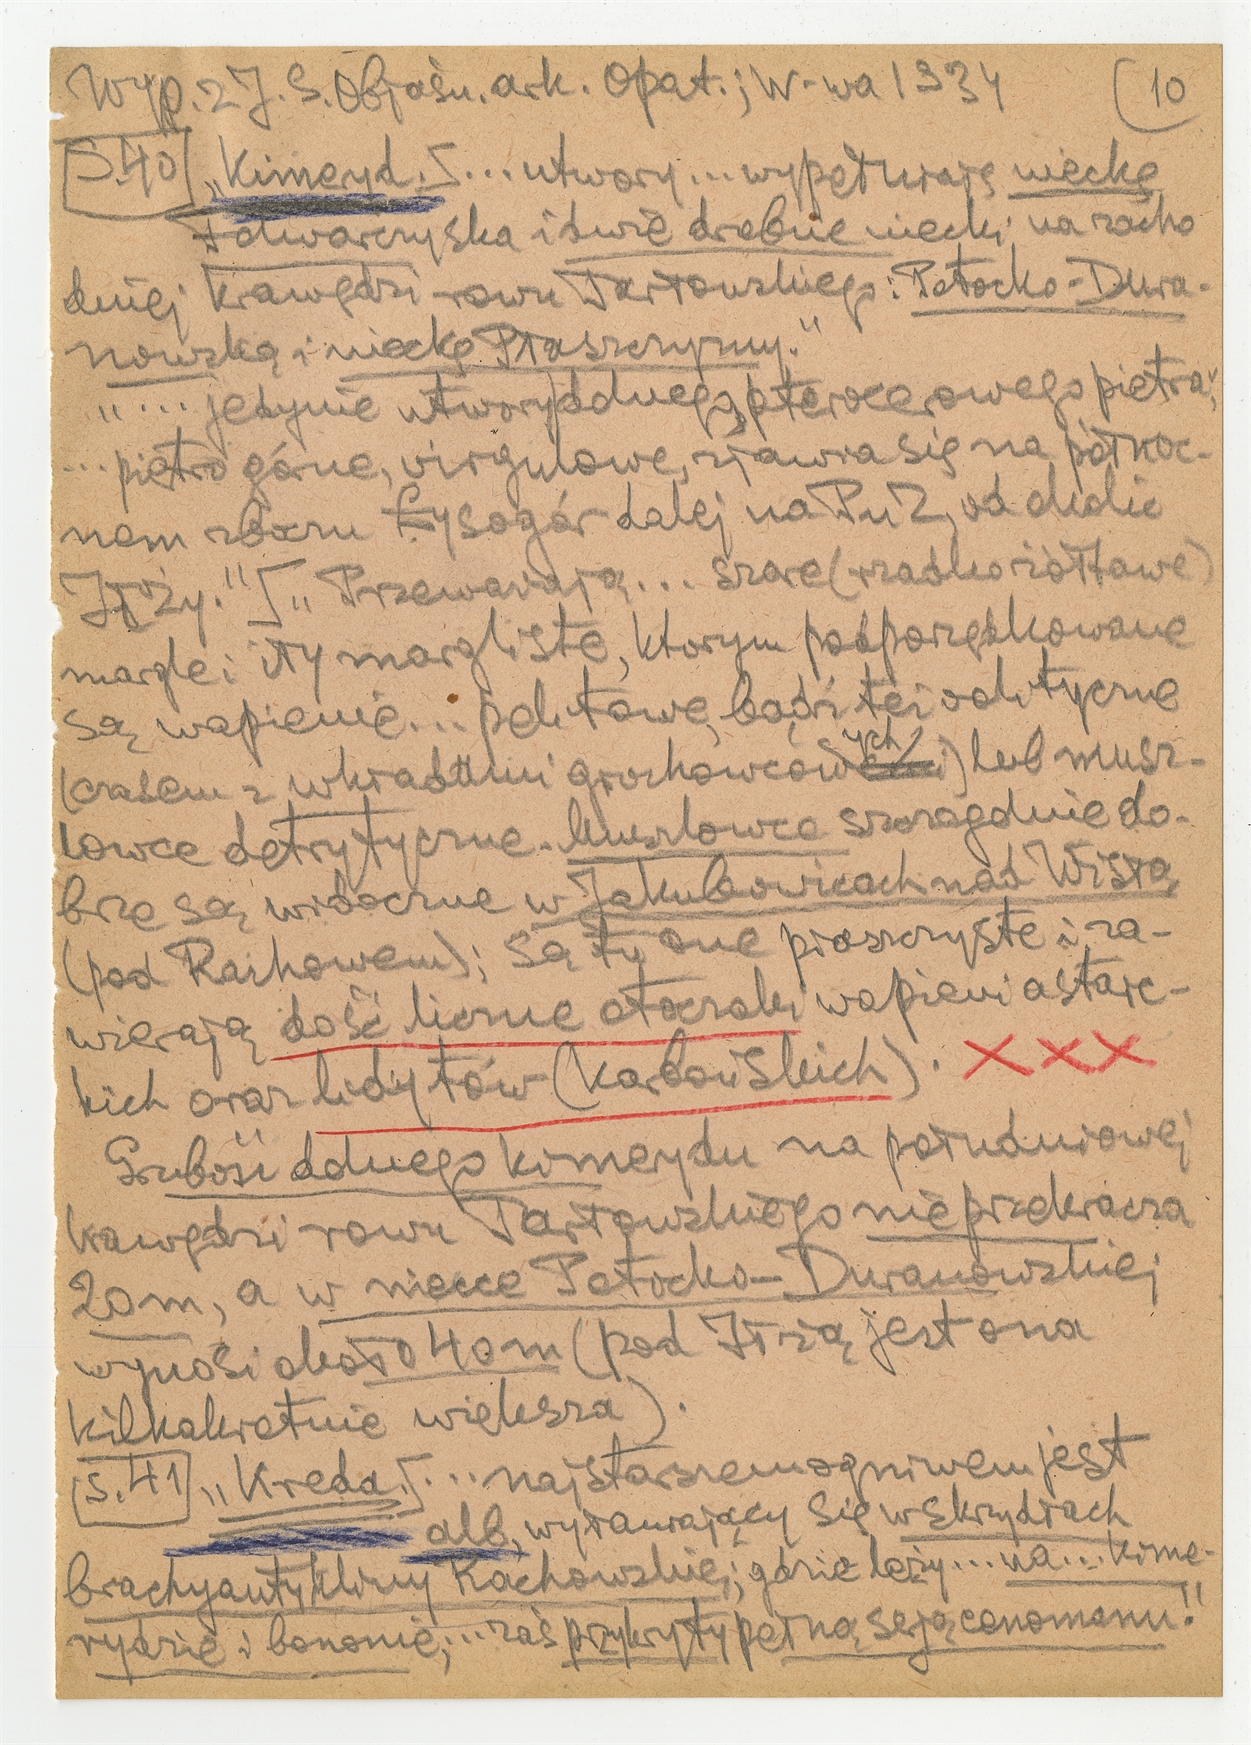 Wyp. z J. S. Objaśn. ark. Opat.; W-wa 1934 (10
S.40 „Kimeryd. [... utwory... wypełniają nieckę
Folwarczyska i dwie drobne niecki na zacho
dniej krawędzi rowu Tarłowskiego: Potocko-Dura-
nowską i nieckę Ptaszczyzny."
„... jedynie utwory ddnego, pterocerowego piętra;
... piętro górne, virgulowe, zjawia się na północ-
nem zboczu Łysogór dalej na Pn Z, od okolic
Iłży." [„Przeważają... szare (rzadko żółtawe)
margle i iły margliste, którym podporządkowane
są wapienie... pelitowe, bądź też oolityczne
(czasem z wkładkmi grochowcowych) lub musz-
lowce detrytyczne. Muszlowce szczególnie do-
brze są widoczne w Jakubowicach nad Wisłą
(pod Rachowem); są tu one piaszczyste i za-
wierają dość liczne otoczaki wapieni astarc-
kich oraz lidytów (karbońskich). XXX
Grubość ddnego kimerydu na południowej
krawędzi rowu Tarłowskiego nie przekracza
20 m, a w niecce Potocko-Duranowskiej
wynosi około 40 m (pod Iłżą jest ona
kilkakrotnie większa).
s.41 „Kreda. [... najstarszem ogniwem jest
alb, wyłaniający się w skrzydłach
brachyantykliny Rachowskiej; gdzie leży... na... kime-
rydzie i bononie;... zaś przykryty pełną serją cenomanu!"